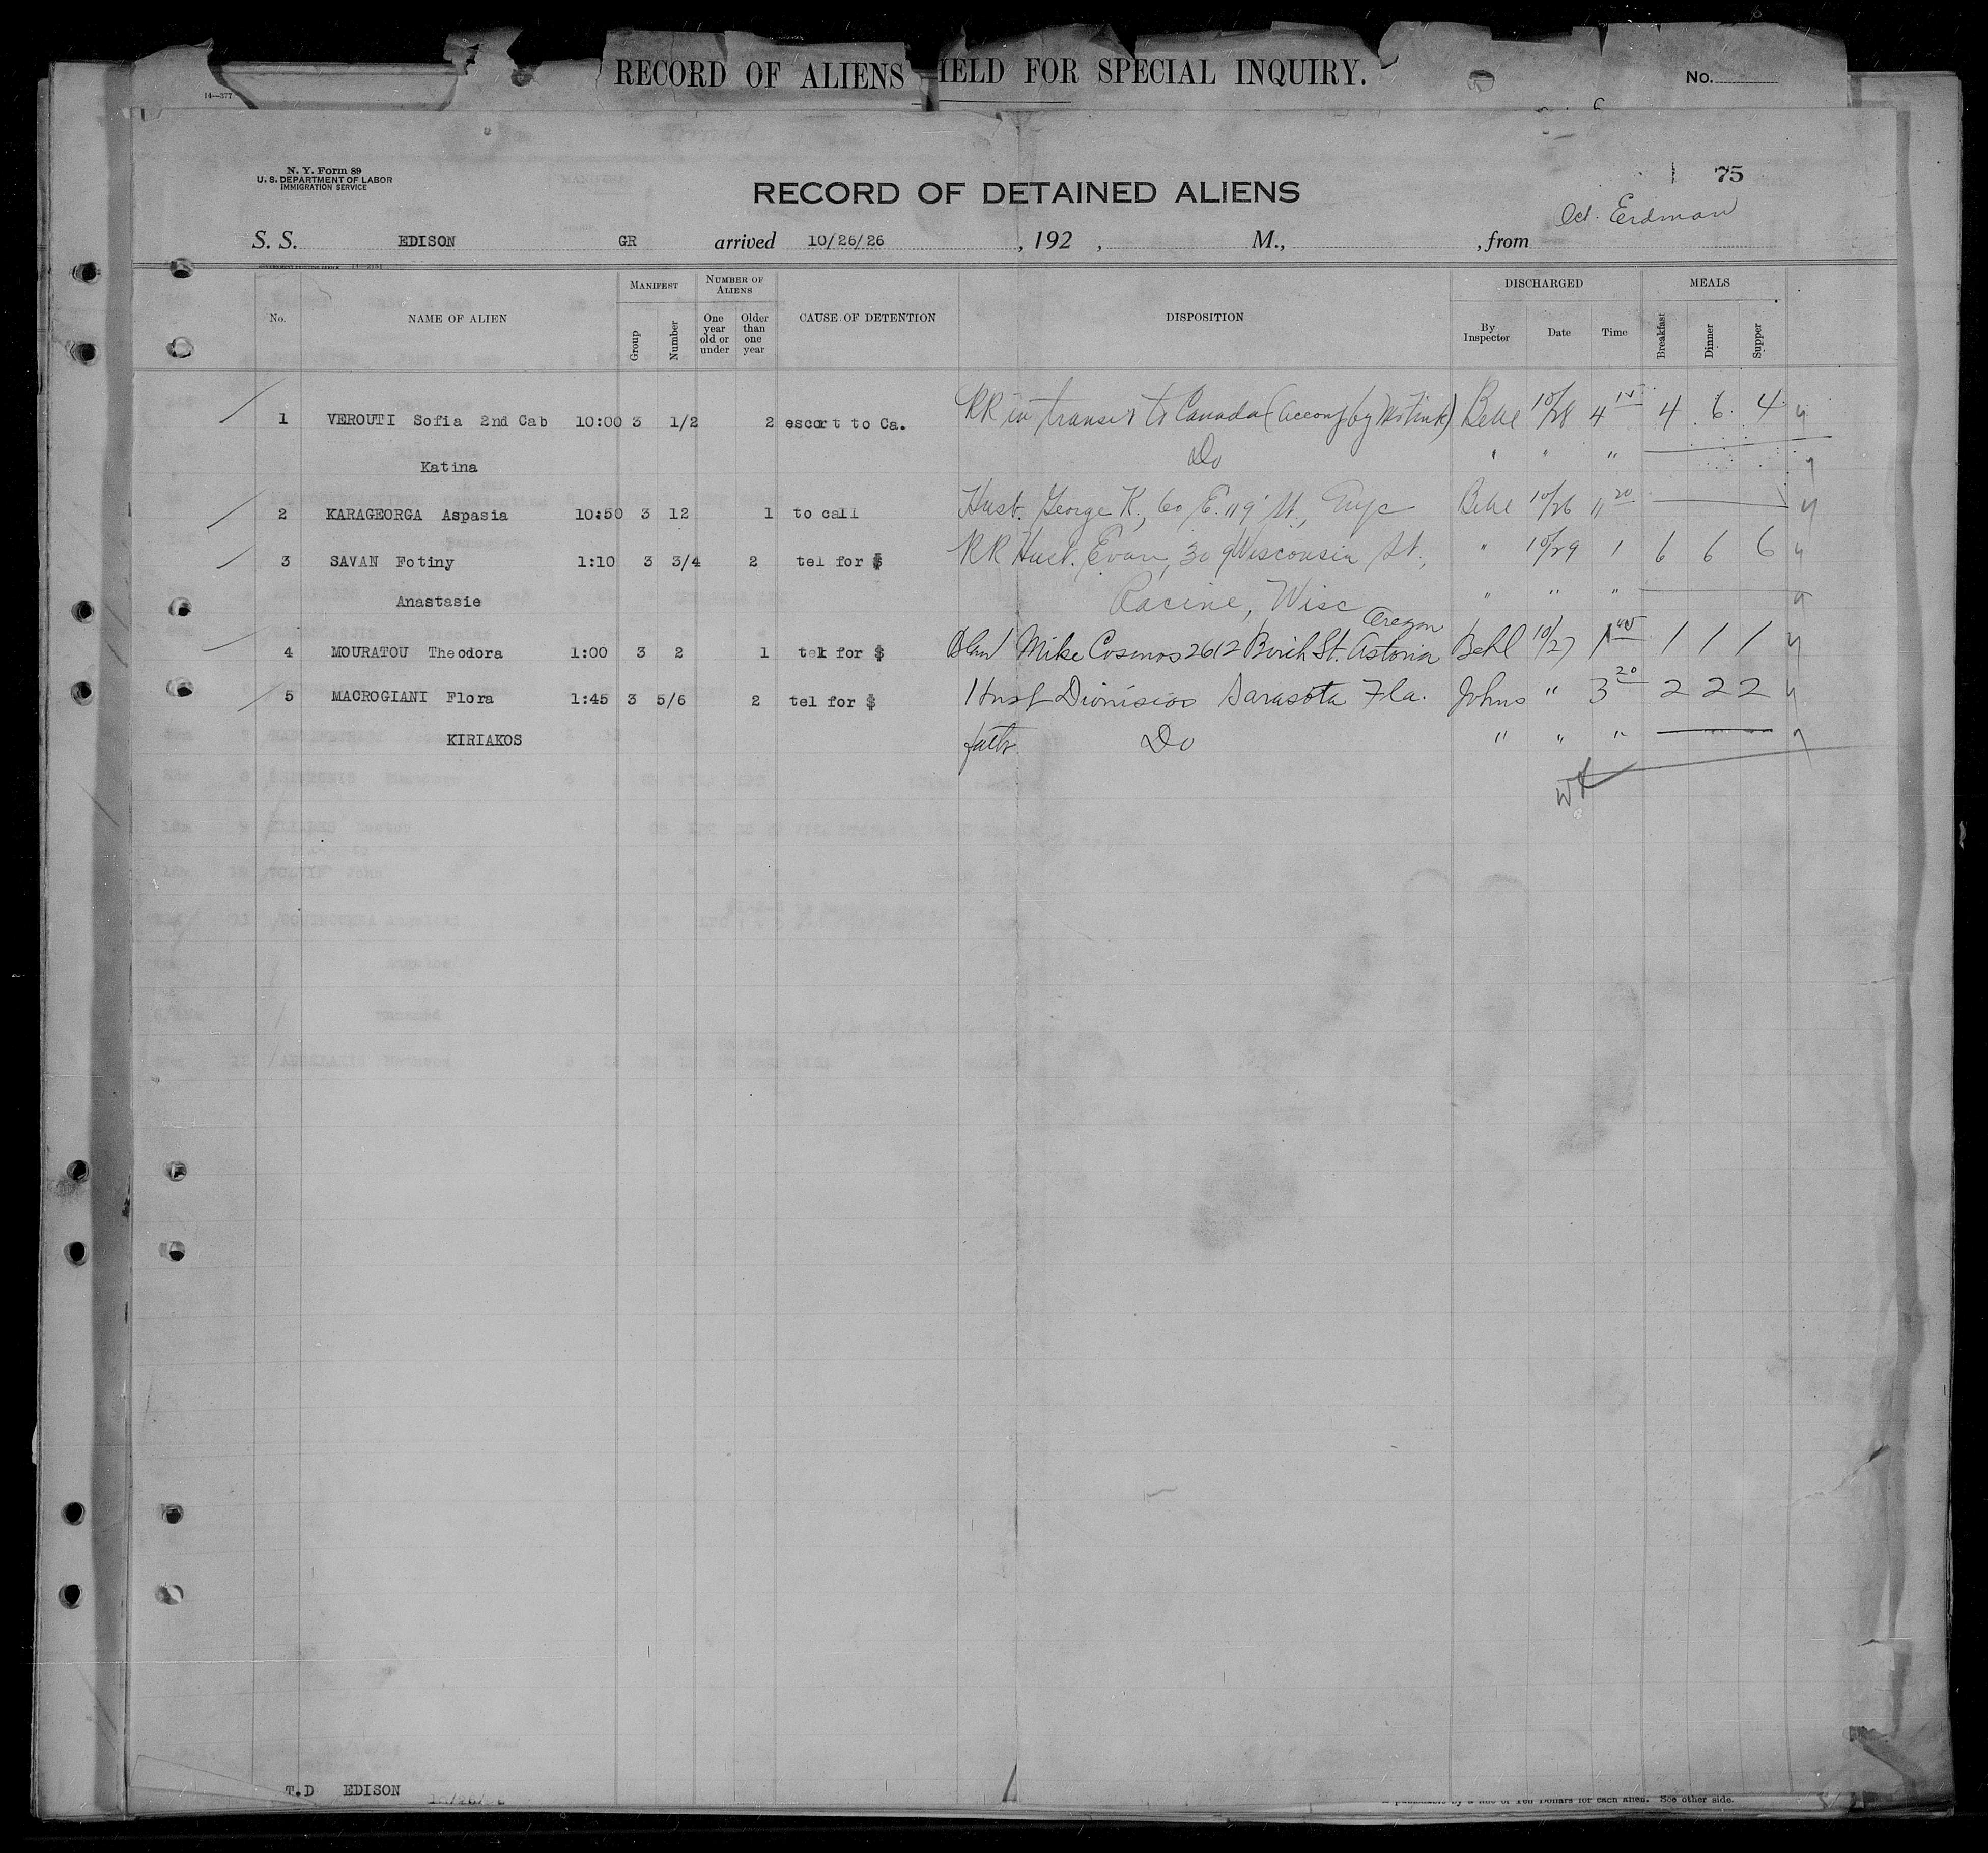 RECORD OF ALIENS HELD FOR SPECIAL INQUIRY.
No.
14—377
N. Y. Form 89
U. S. DEPARTMENT OF LABOR
IMMIGRATION SERVICE
75
RECORD OF DETAINED ALIENS
Erdman
S. S. EDISON GR arrived 10/26/26, 192 , M., , from
MANIFEST NUMBER OF ALIENS DISCHARGED MEALS
No. NAME OF ALIEN Group Number One year old or under Older than one year CAUSE OF DETENTION DISPOSITION By Inspector Date Time Breakfast Dinner Supper
1 VEROUTI Sofia 2nd Cab 10:00 3 1/2 2 escort to Ca. RR in transit to Canada 10/28 4 15 4 6 4
Katina Do " " "
2 KARAGEORGA Aspasia 10:50 3 12 1 to call Husb. George K., 60 E. 119 St., NYC 10/26 11 20
3 SAVAN Fotiny 1:10 3 3/4 2 tel for $ RR Husb. Evan, 309 Wisconsin St., " 10/29 1 6 6 6
Anastasie Racine, Wisc " " "
Oregon
4 MOURATOU Theodora 1:00 3 2 1 tel for $ Mike Cosmos 2612 Birch St. Astoria 10/27 1 45 1 1 1
5 MACROGIANI Flora 1:45 3 5/6 2 tel for $ Husb Dionisios Sarasota Fla. Johns " 3 20 2 2 2
KIRIAKOS fathr Do " " "
T.D EDISON
by a fine of Ten Dollars for each alien. See other side.